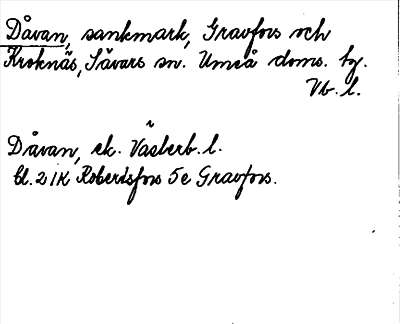 Dåvan, sankmark, Gravfors och
Kroknäs, Sävars sn. Umeå doms. tg.
Vb. l.
Dåvan, ek. Västerb. l.
bl. 21K Robertsfors 5e Gravfors.